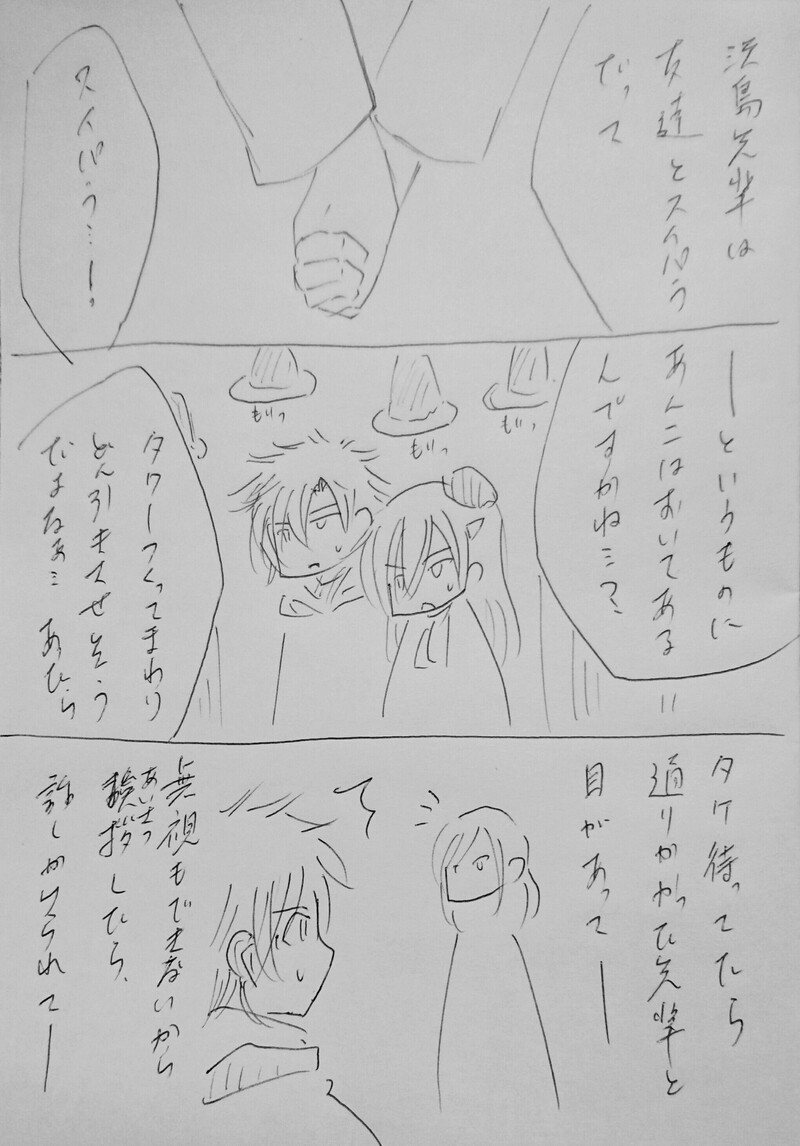 浜島先輩は
友達とスイパラ
だって
スイパラ…ー。
ーというものに
あんこはおいてある
んですかね…?
もりっ
もりっ
もりっ
タワーつくってまわり
どん引きさせそう
だよなぁ… あひら
タケ待ってたら
通りかかった先輩と
目があってー
無視もできないから
挨拶したら、
あいさつ
話しかけられてー